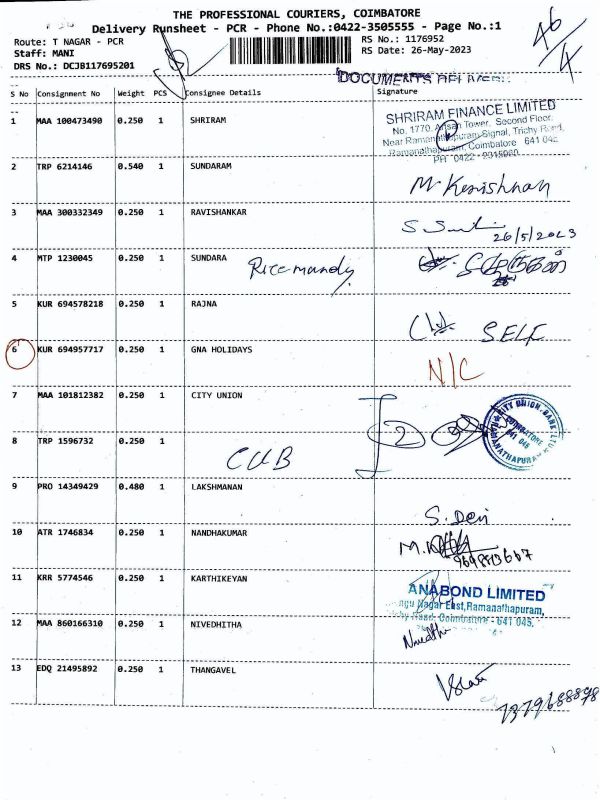 THE PROFESSIONAL COURIERS, COIMBATORE
Delivery Runsheet - PCR - Phone No.:0422-3505555 - Page No.:1
Route: T NAGAR - PCR
RS No.: 1176952
Staff: MANI
RS Date: 26-May-2023
DRS No.: DCJB117695201
46/4
DOCUMENTS
S No Consignment No Weight PCS Consignee Details Signature
1 MAA 100473490 0.250 1 SHRIRAM
SHRIRAM FINANCE LIMITED
No. 1770, Tower, Second Floor,
Near Ramanathapuram Signal, Trichy Road,
Ramanathapuram, Coimbatore 641 045
PH 0422 -
2 TRP 6214146 0.540 1 SUNDARAM
3 MAA 300332349 0.250 1 RAVISHANKAR
26/5/2023
4 MTP 1230045 0.250 1 SUNDARA Ricemandy
5 KUR 694578218 0.250 1 RAJNA SELF
6 KUR 694957717 0.250 1 GNA HOLIDAYS N/C
7 MAA 101812382 0.250 1 CITY UNION
CITY UNION BANK LTD
COIMBATORE
641 045
RAMANATHAPURAM
8 TRP 1596732 0.250 1 CUB 2
9 PRO 14349429 0.480 1 LAKSHMANAN S. Devi
10 ATR 1746834 0.250 1 NANDHAKUMAR
11 KRR 5774546 0.250 1 KARTHIKEYAN
ANABOND LIMITED
Nagar East, Ramanathapuram,
Road, Coimbatore - 641 045.
12 MAA 860166310 0.250 1 NIVEDHITHA
13 EDQ 21495892 0.250 1 THANGAVEL